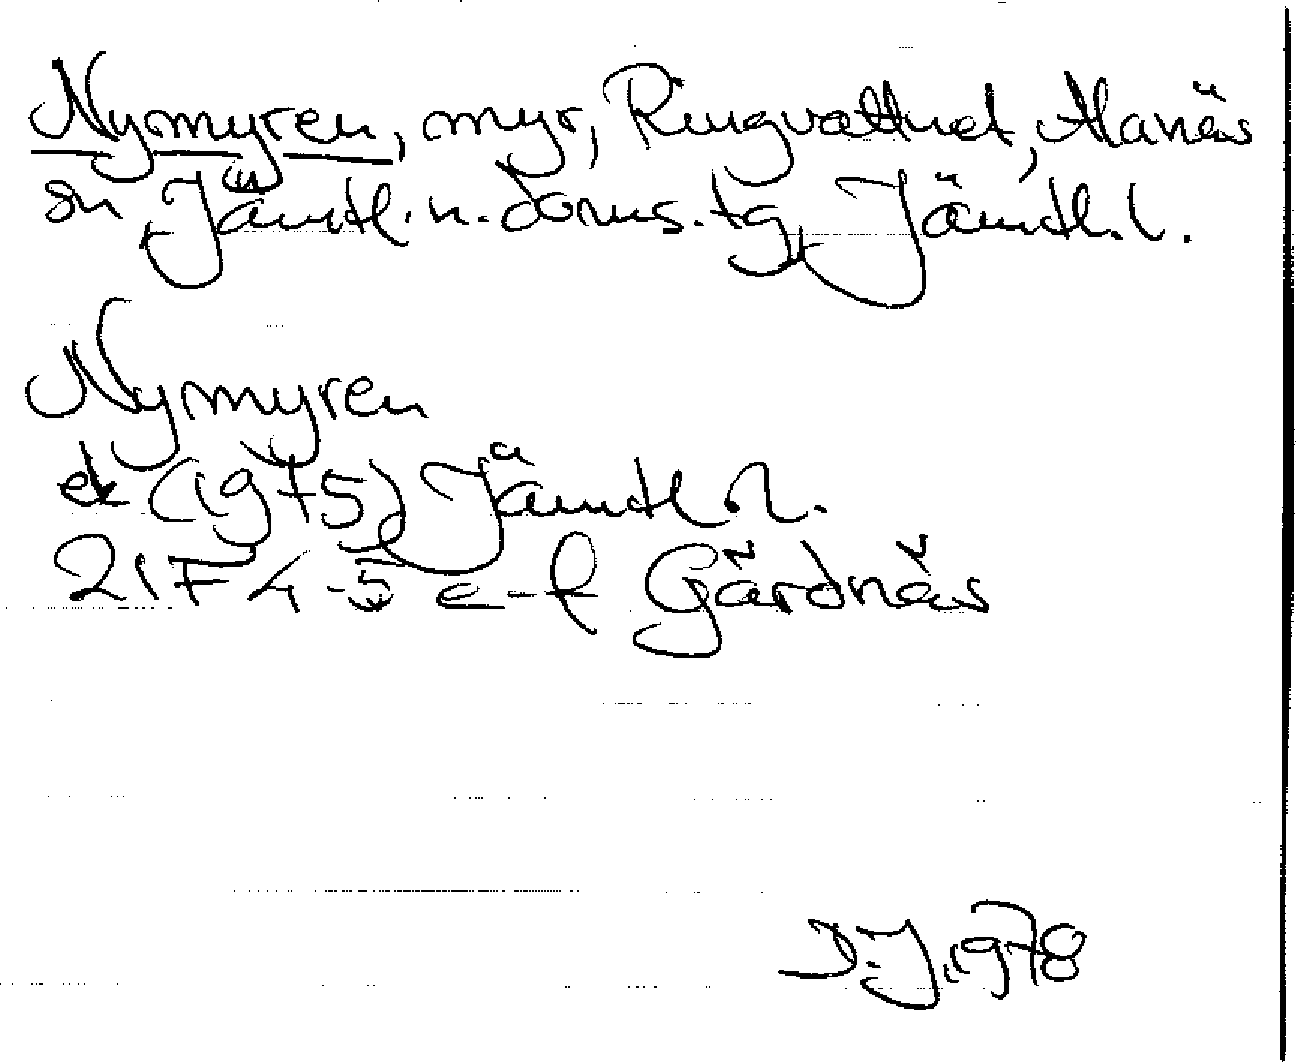 Nymyren, myr, Ringvattnet, Alanäs
sn Jämtl. n. doms. tg, Jämtl. l.
Nymyren
ek (1975) Jämtl l.
21F 4-5 e-f Gärdnäs
D.J. 1978